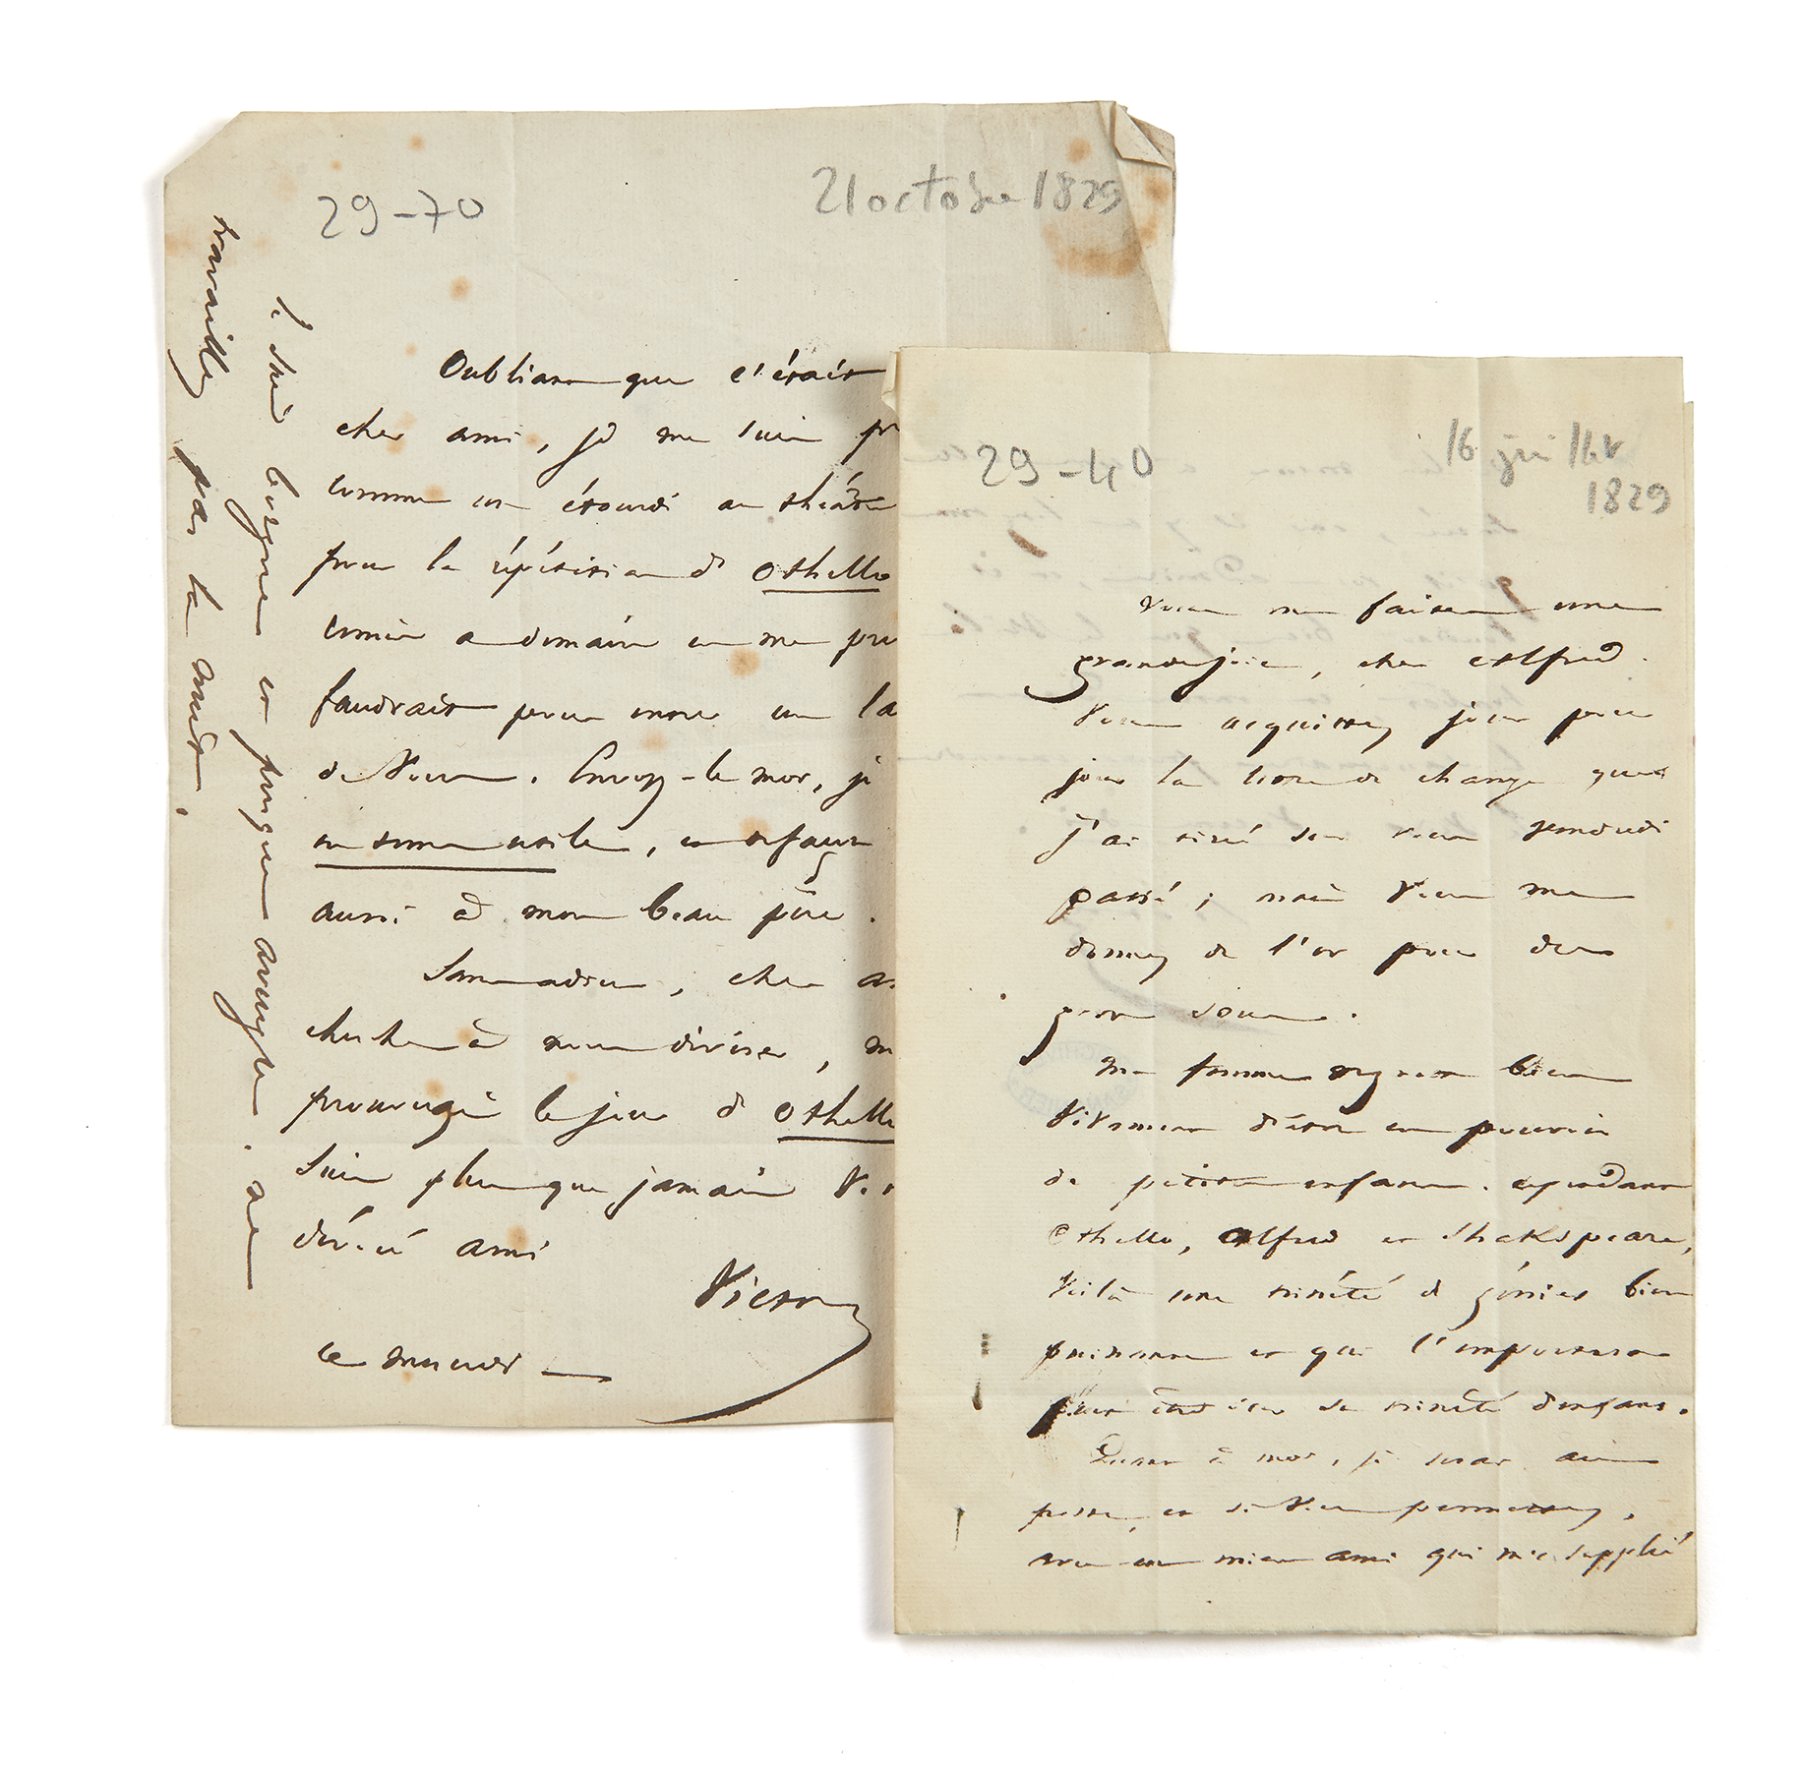 29-70
21 octobre 1829
Oubliant que c'était
cher ami, je me suis
comme un étourdi au théâtre
pour la répétition d'Othello
remise à demain on me
faudrait pour
de Vous. Envoyez-le moi, je
en somme utile, en
aussi à mon beau père.
Sans adieu, cher
cherche à nous diviser, m
prouvez le jour d'Othello
suis plus que jamais V
dévoué ami
Victor
ce mercredi
Je suis borgne et presque aveugle. ne
travaillez pas la nuit.
29-40
16 juillet
1829
Vous me faites une
grande joie, cher Alfred.
Vous acquittez jour pour
jour la lettre de change que
j'ai tiré sur vous vendredi
passé ; mais Vous me
donnez de l'or pour des
gros sous.
Ma femme regrette bien
Vivement d'être en pouvoir
de petits enfans. cependant
Othello, Alfred et Shakspeare,
Voilà une trinité de génies bien
puissante et qui l'emportera
peut être sur sa trinité d'enfans.
Quant à moi, je serai à mon
poste, et si Vous permettez,
avec un mien ami qui m'a supplié